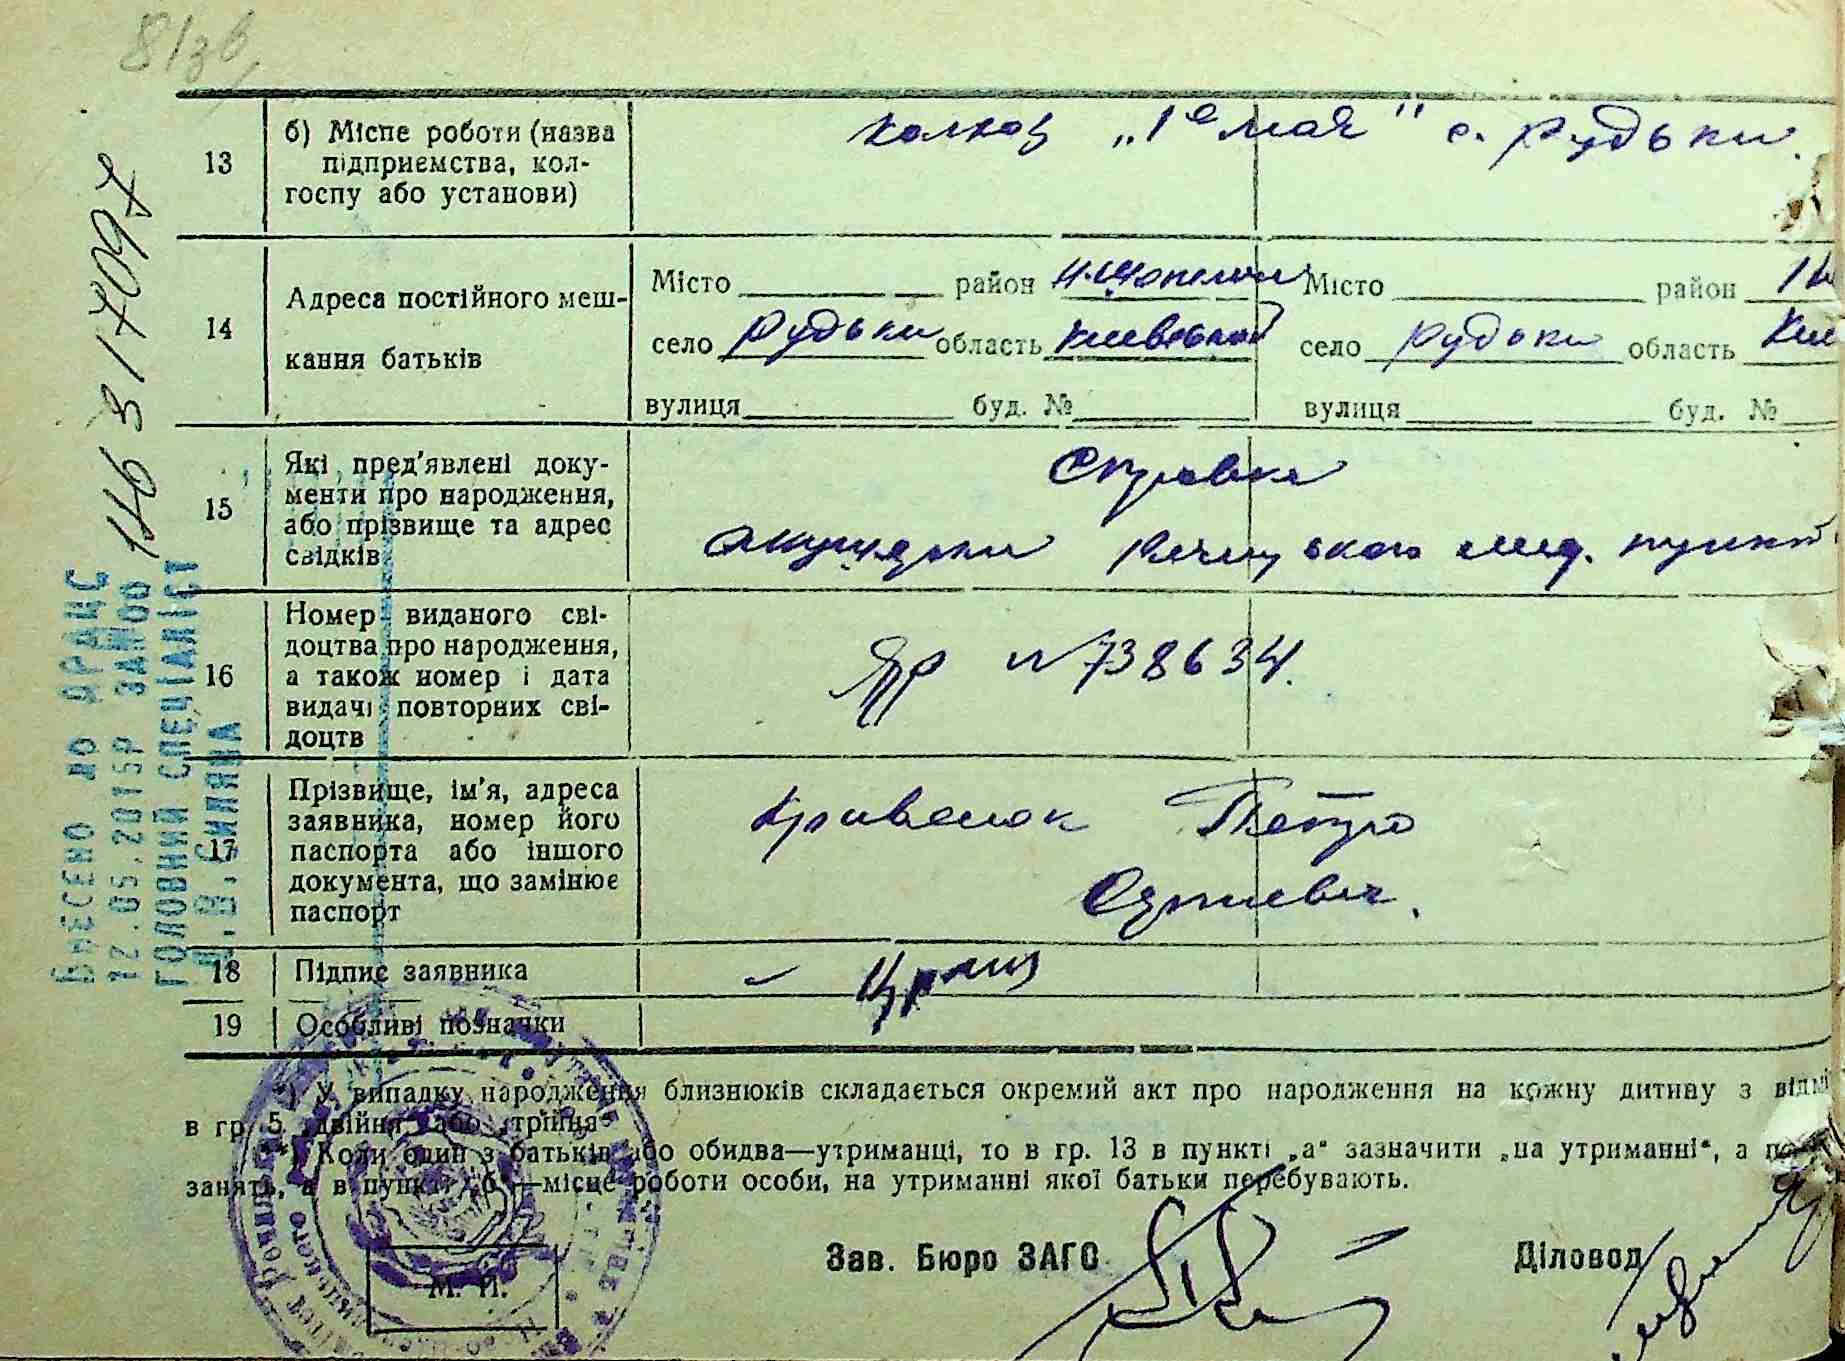 13
б) Місце роботи (назва
підприємства, кол-
госпу або установи)
колхоз „1е мая" с. Рудьки.
14
Адреса постійного меш-
кання батьків
Місто район Місто район
село Рудьки область Киевской село Рудьки область Кие
вулиця буд. № вулиця буд. №
15
Які пред'явлені доку-
менти про народження,
або прізвище та адрес
свідків
Справка
акушерки мед. пункт
16
Номер виданого сві-
доцтва про народження,
а також номер і дата
видачі повторних сві-
доцтв
ЯР №738634.
17
Прізвище, ім'я, адреса
заявника, номер його
паспорта або іншого
документа, що замінює
паспорт
Кривенок Петро
18
Підпис заявника
19
Особливі позначки
*) У випадку народження близнюків складається окремий акт про народження на кожну дитину з відмі
в гр. 5 „двійня" або „трійня"
**) Коли один з батьків або обидва—утриманці, то в гр. 13 в пункті „а" зазначити „на утриманні", а
занять, а в пункті „б"—місце роботи особи, на утриманні якої батьки перебувають.
Зав. Бюро ЗАГС Діловод
М. П.
ВНЕСЕНО ДО ДРАЦС
12.05.2015Р ЗА №00 116 317097
ГОЛОВНИЙ СПЕЦІАЛІСТ